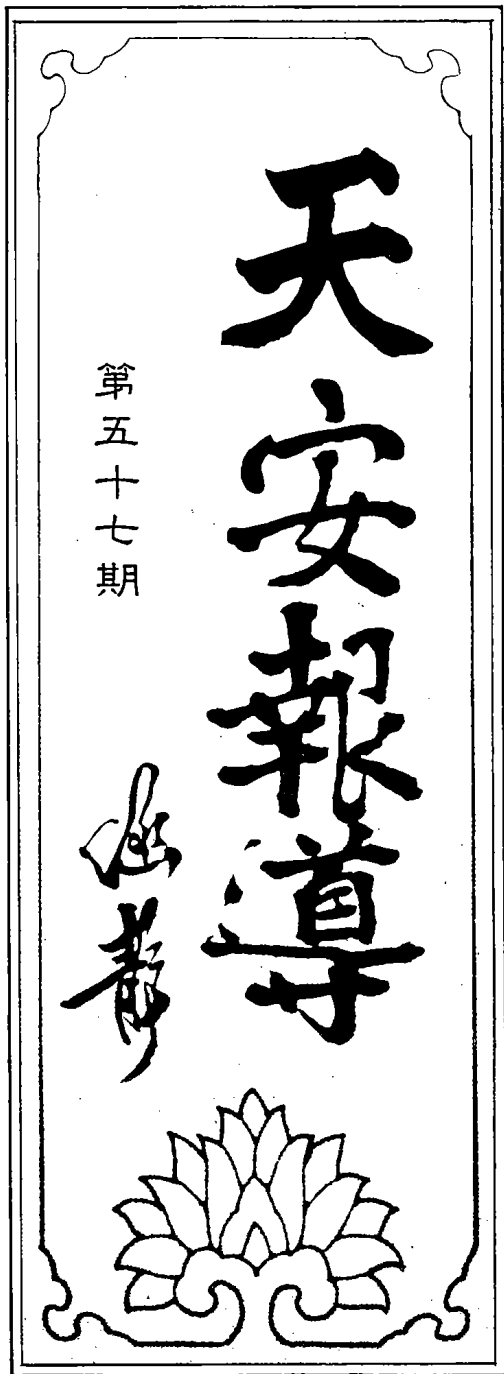 天安報導
第五十七期
涵靜